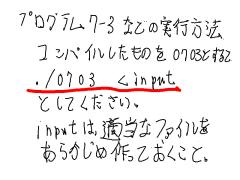 プログラム7-3 などの実行方法
コンパイルしたものを0703とすると
./0703 <input
としてください。
inputは適当なファイルを
あらかじめ作っておくこと。